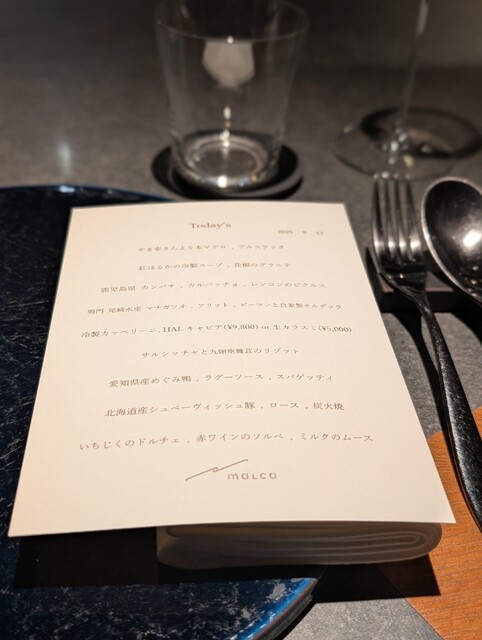 Today's
2025 . 9 . 12
やま幸さんより本マグロ , ブルスケッタ
紅はるかの冷製スープ , 花椒のグラニテ
鹿児島県 カンパチ , カルパッチョ , レンコンのピクルス
鳴門 尾崎水産 マナガツオ , フリット , ピーマンと自家製サルデッラ
冷製カッペリーニ, HAL キャビア(¥9,800) or 生カラスミ(¥5,000)
サルシッチャと九頭竜舞茸のリゾット
愛知県産めぐみ鴨 , ラグーソース , スパゲッティ
北海道産シュベーヴィッシュ豚 , ロース , 炭火焼
いちじくのドルチェ , 赤ワインのソルベ , ミルクのムース
malca